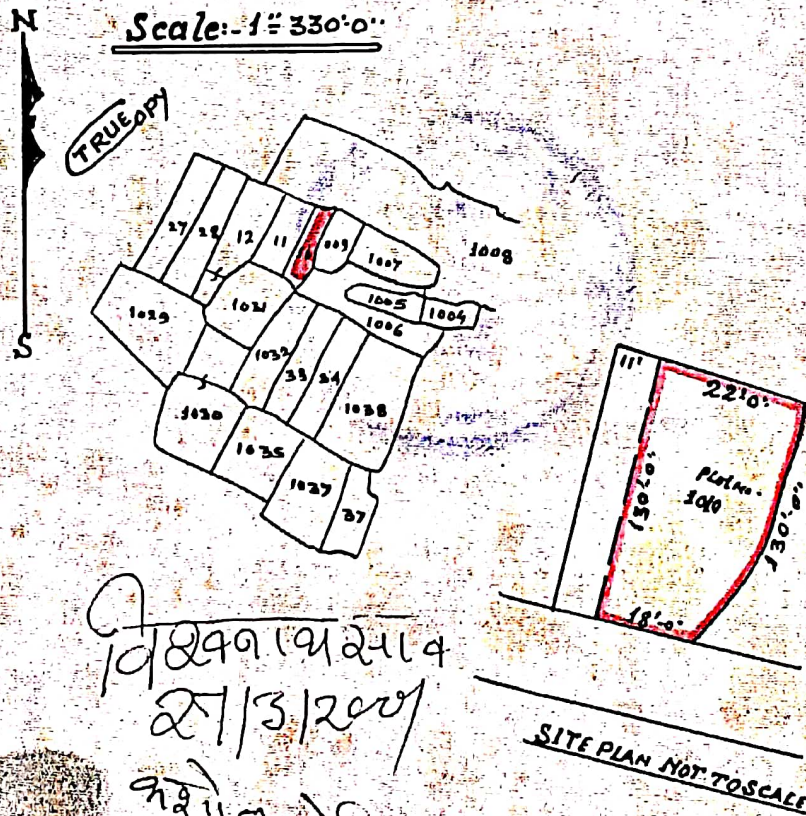 N
Scale:-1"=330'-0"
TRUE COPY
27
28
12
11
1009
1007
1008
1005
1004
1006
1029
1021
1032
33
34
1038
1030
1035
1037
37
S
11'
22'0"
130'-0"
Plot No.
1010
130'-0"
18'-0"
विश्वनाथ साव
SITE PLAN NOT TO SCALE